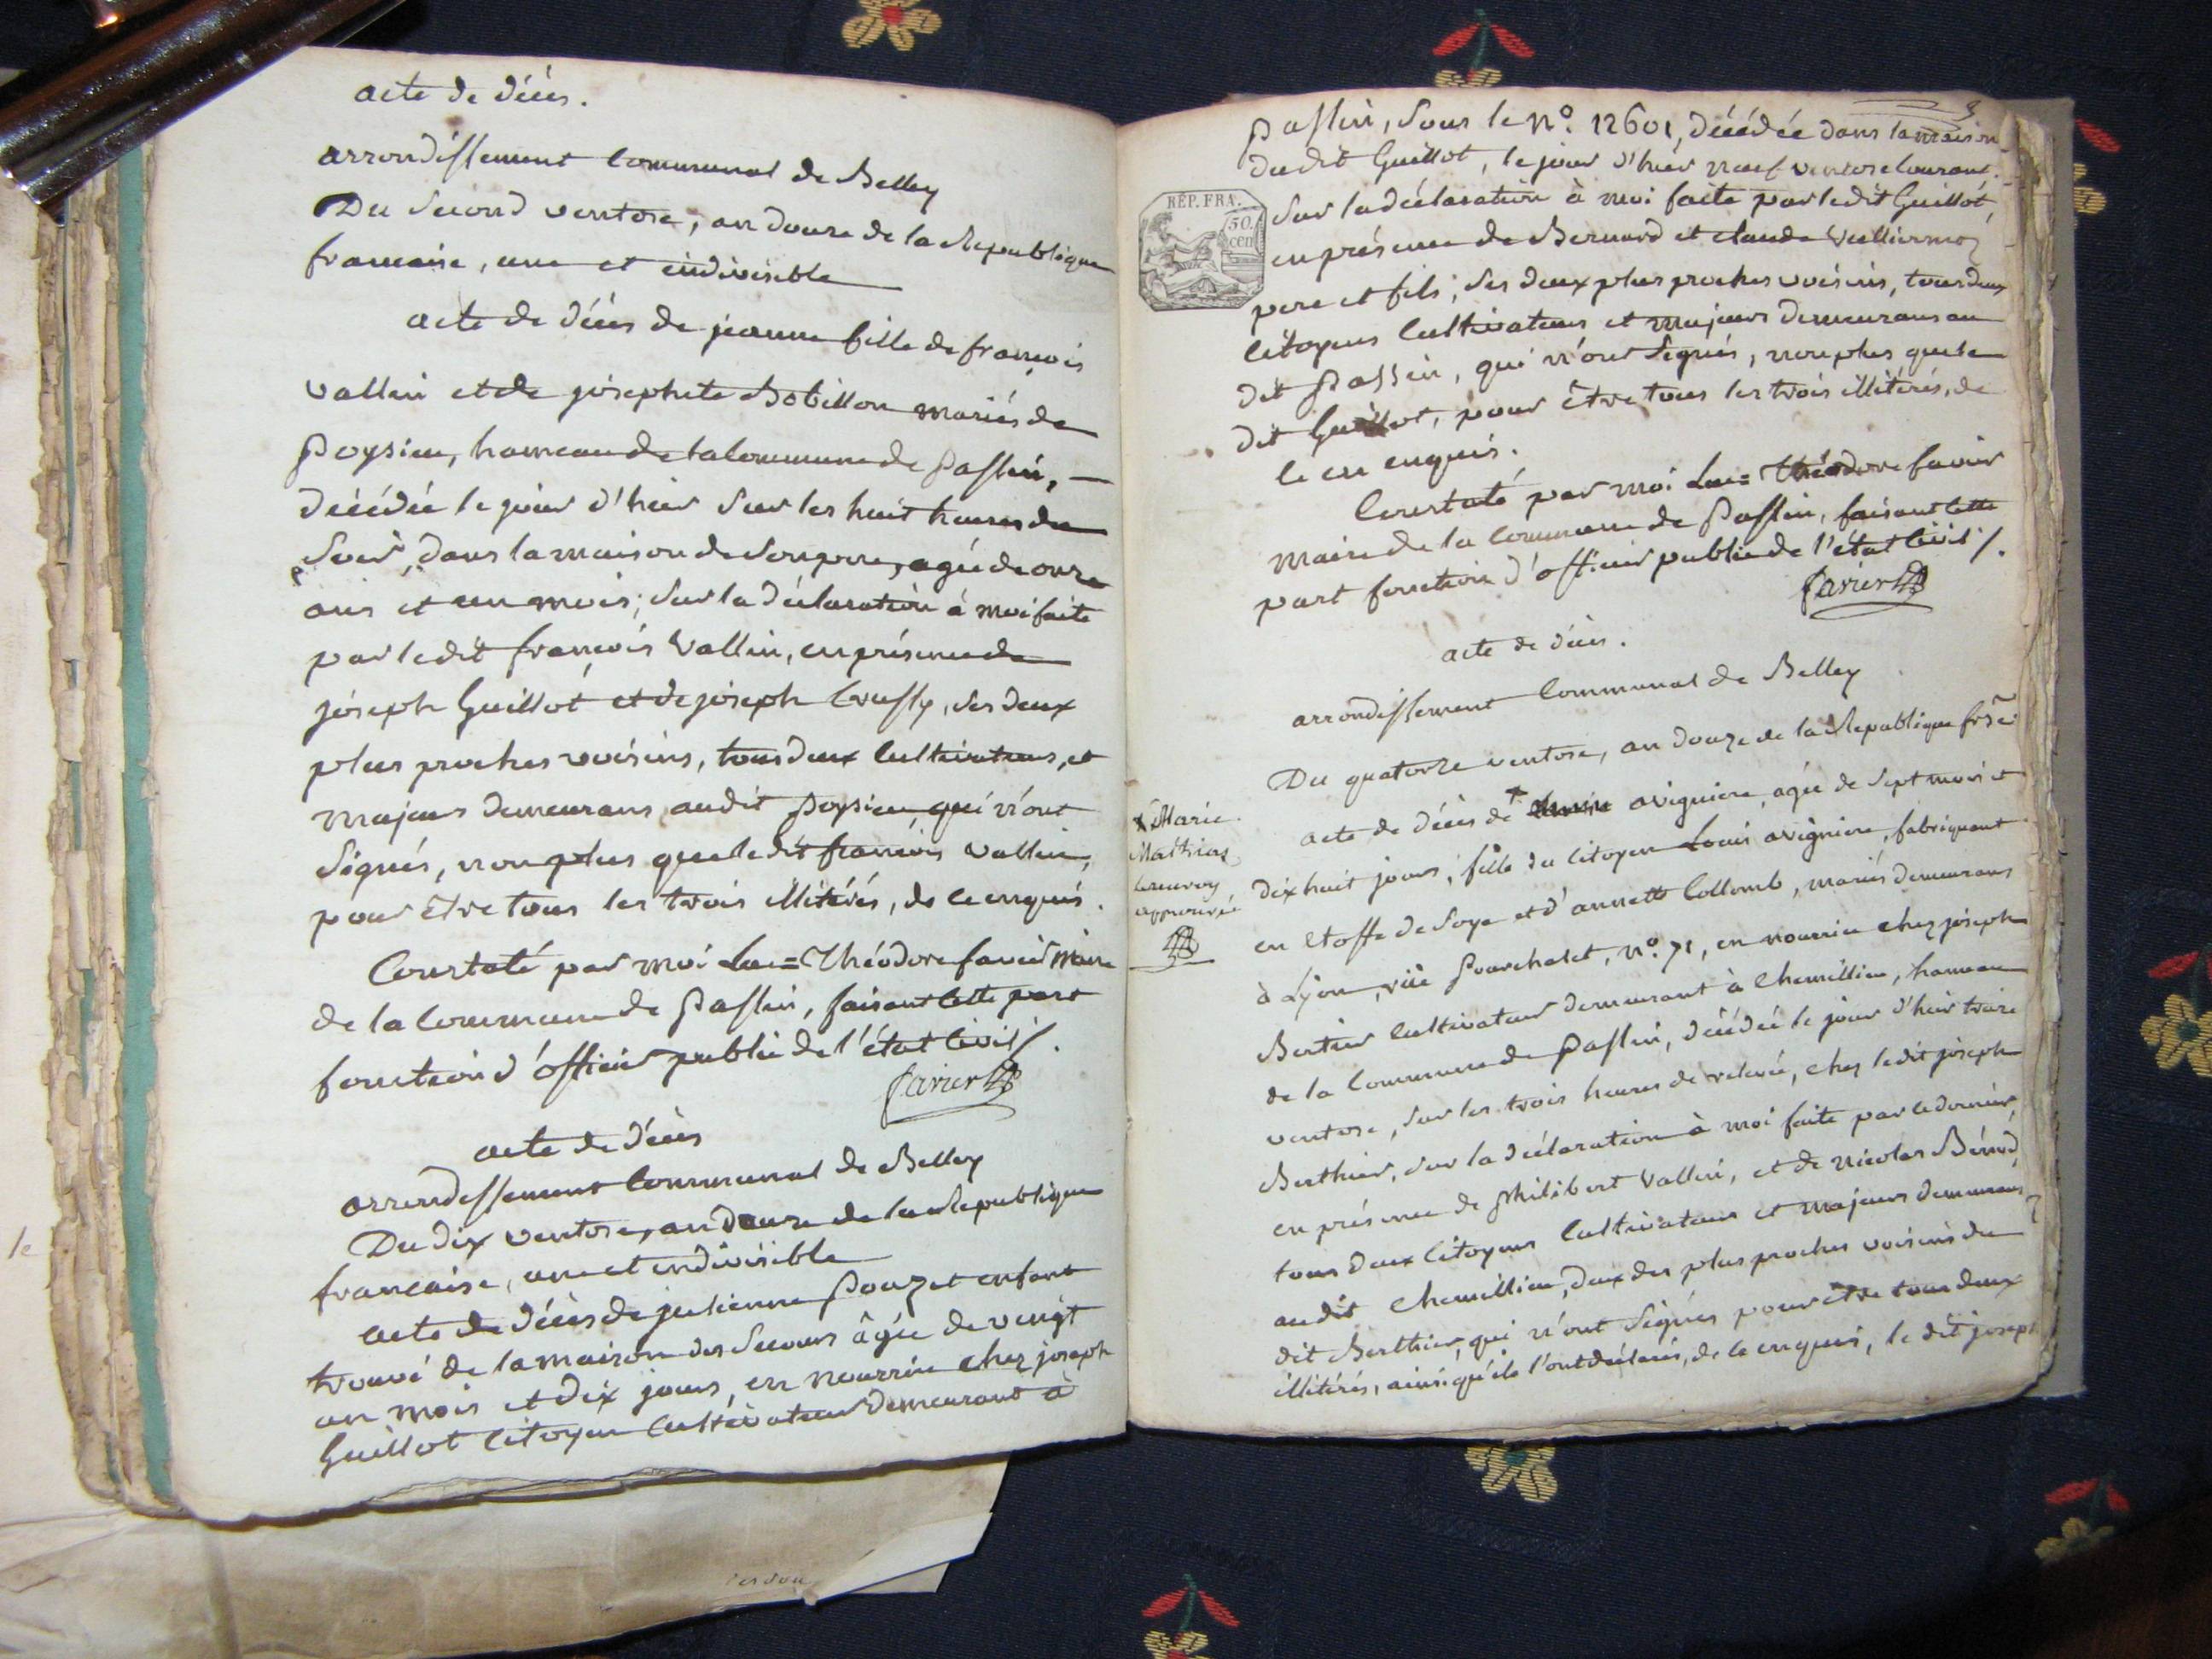 acte de décès.
arrondissement Communal de Belley
Du second ventose, an douze de la Republique
francaise, une et indivisible
acte de décès de jeanne fille de françois
vallin et de josephte Bobillon mariés de
Poysieu, hameau de la Commune de Passin,
décédée le jour d'hier sur les huit heures du
soir, dans la maison de son pere, agée de onze
ans et un mois; sur la déclaration à moi faite
par le dit françois Vallin, en présence de
joseph Guillot et de joseph Crussy, ses deux
plus proches voisins, tous deux Cultivateurs, et
majeurs demeurans audit Poysieu, qui n'ont
signés, non plus que le dit françois vallin,
pour être tous les trois illitérés, de ce enquis.
Constaté par moi Luc=Théodore favier Maire
de la Commune de Passin, faisant cette part
fonction d'officier public de l'état Civil /.
favier
acte de décès
arrondissement Communal de Belley
Du dix ventose, an douze de la Republique
francaise, une et indivisible
acte de décès de julienne Pouzet enfant
trouvé de la maison des secours âgée de vingt
un mois et dix jours, en nourrice chez joseph
Guillot Citoyen Cultivateur demeurant à
Passin, sous le N°. 12601, décédée dans la maison
du dit Guillot, le jour d'hier neuf ventose Courant.
RÉP. FRA.
50
cen
sur la déclaration à moi faite par le dit Guillot,
en présence de Bernard et claude Vulliermoz
pere et fils; ses deux plus proches voisins, tous deux
Citoyens Cultivateurs et majeurs demeurans au
dit Passin, qui n'ont signés, non plus que le
dit Guillot, pour être tous les trois illitérés, de
ce en enquis.
Constaté par moi Luc=Théodore favier
maire de la Commune de Passin, faisant cette
part fonction d'officier public de l'état Civil /.
favier
acte de décès.
arrondissement Communal de Belley
Du quatorze ventose, an douze de la Republique frse
acte de décès de avigniere, agée de sept mois et
x Marie
Mathias
le renvoy
approuvé
dix huit jours, fille du Citoyen Louis avigniere, fabriquant
en étoffe de soye et d'annette Collomb, mariés demeurans
à Lyon, rüe Pourchalet, N°. 71, en nourrice chez joseph
Bertier Cultivateur demeurant à Chemillieu, hameau
de la Commune de Passin, décédée le jour d'hier treize
ventose, sur les trois heures de relevée, chez le dit joseph
Berthier, sur la déclaration à moi faite par ce dernier,
en présence de Philibert Vallin, et de Nicolas Bénod,
tous deux Citoyens Cultivateurs et majeurs demeurans
audit Chemillieu, deux des plus proches voisins du
dit Berthier, qui n'ont signés pour être tous deux
illitérés, ainsi qu'ils l'ont déclarés, de ce enquis, le dit joseph
le